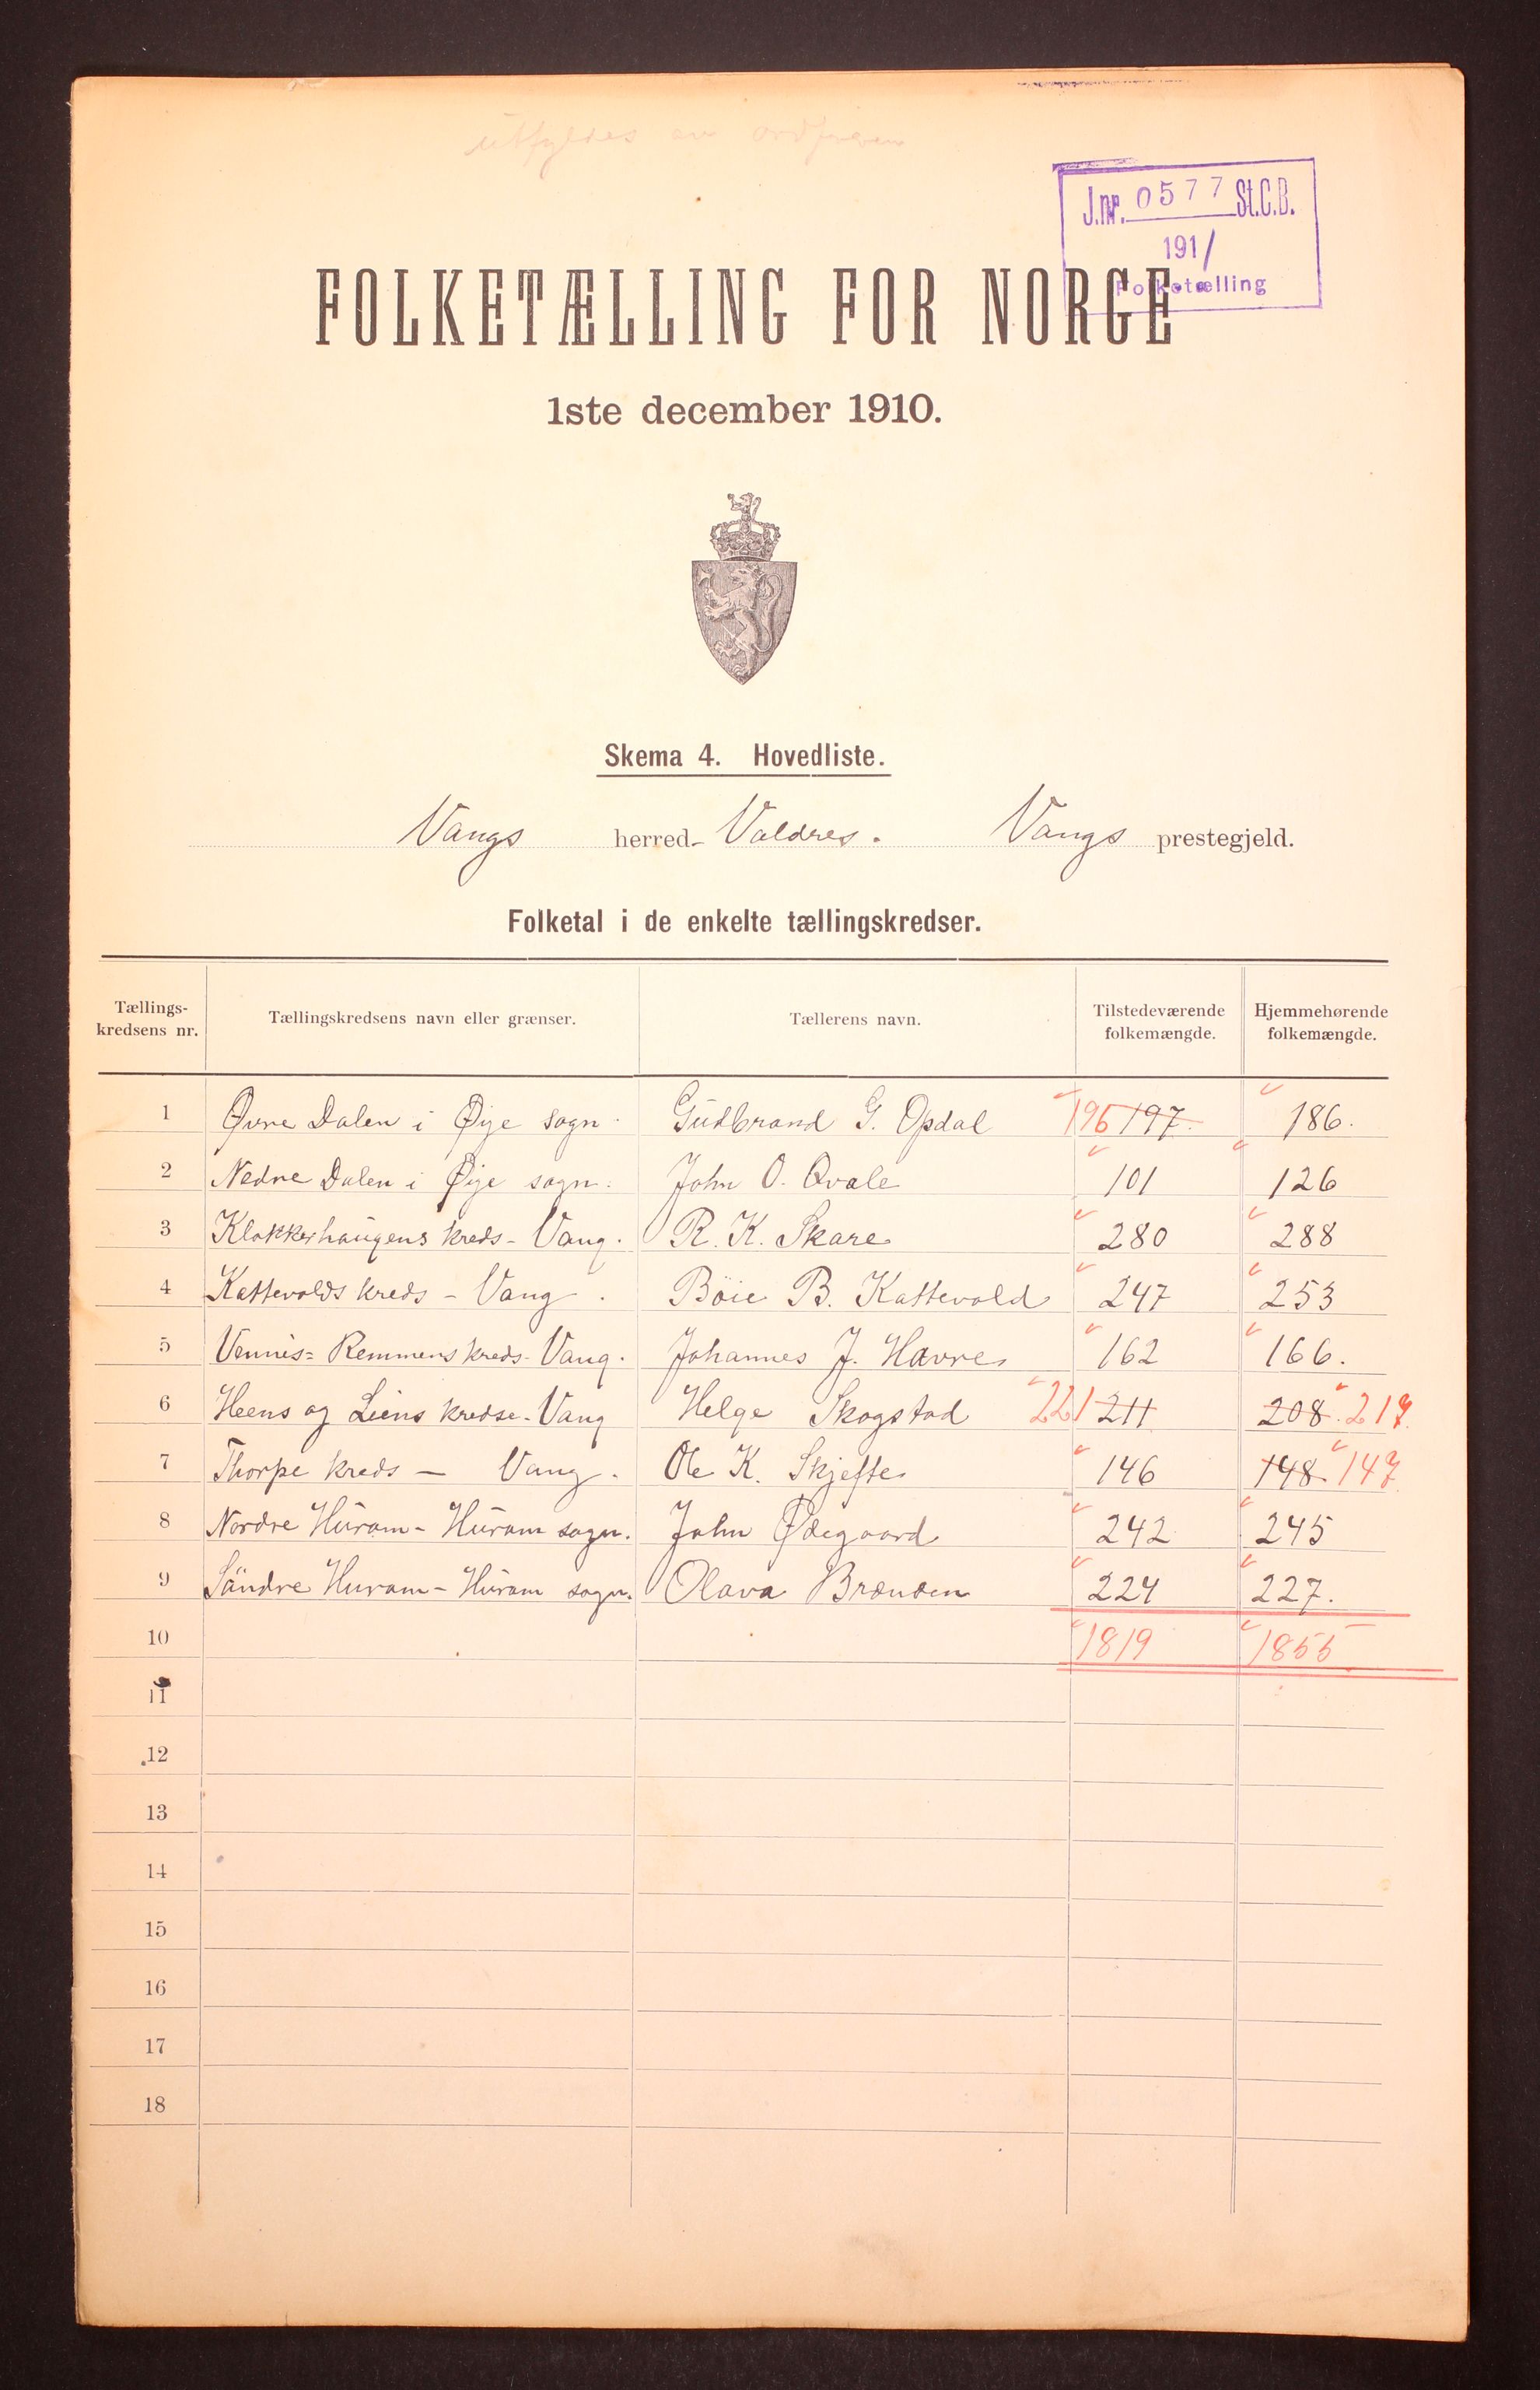 utfyldes av ordføreren
J.nr. 0577 St.C.B.
1911
Folketælling
FOLKETÆLLING FOR NORGE
1ste december 1910.
Skema 4. Hovedliste.
Vangs herred - Valdres. Vangs prestegjeld.
Folketal i de enkelte tællingskredser.
Tællings-kredsens nr. Tællingskredsens navn eller grænser. Tællerens navn. Tilstedeværende folkemængde. Hjemmehørende folkemængde.
1 Øvre Dalen i Øye sogn. Gudbrand G. Opdal 196 197. 186.
2 Nedre Dalen i Øye sogn. John O. Qvale 101 126
3 Klokkerhaugens kreds - Vang. R. K. Skare 280 288
4 Kattevolds kreds - Vang. Böie B. Kattevold 247 253
5 Vennis= Remmens kreds - Vang. Johannes J. Havre 162 166.
6 Heens og Liens kredse - Vang Helge Skogstad 221 211 208. 217.
7 Thorpe kreds - Vang. Ole K. Skjefte 146 148. 147.
8 Nordre Hurum - Hurum sogn. John Ødegaard 242 245
9 Søndre Hurum - Hurum sogn. Olava Brænden 224 227.
10 1819 1855
11
12
13
14
15
16
17
18